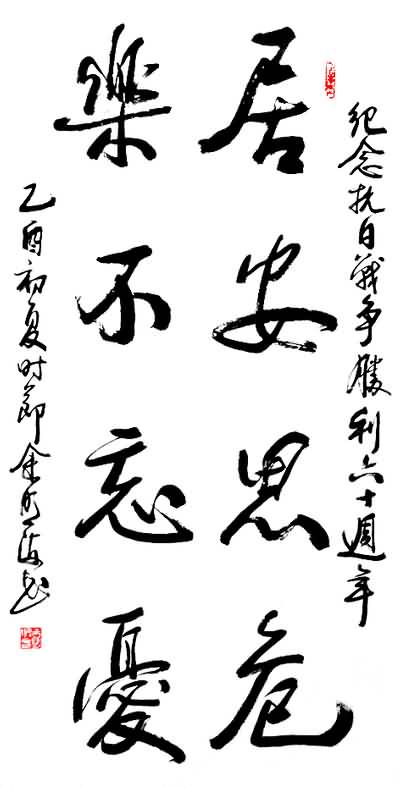 纪念抗日戰争勝利六十週年
居安思危
樂不忘憂
乙酉初夏时節余明海书